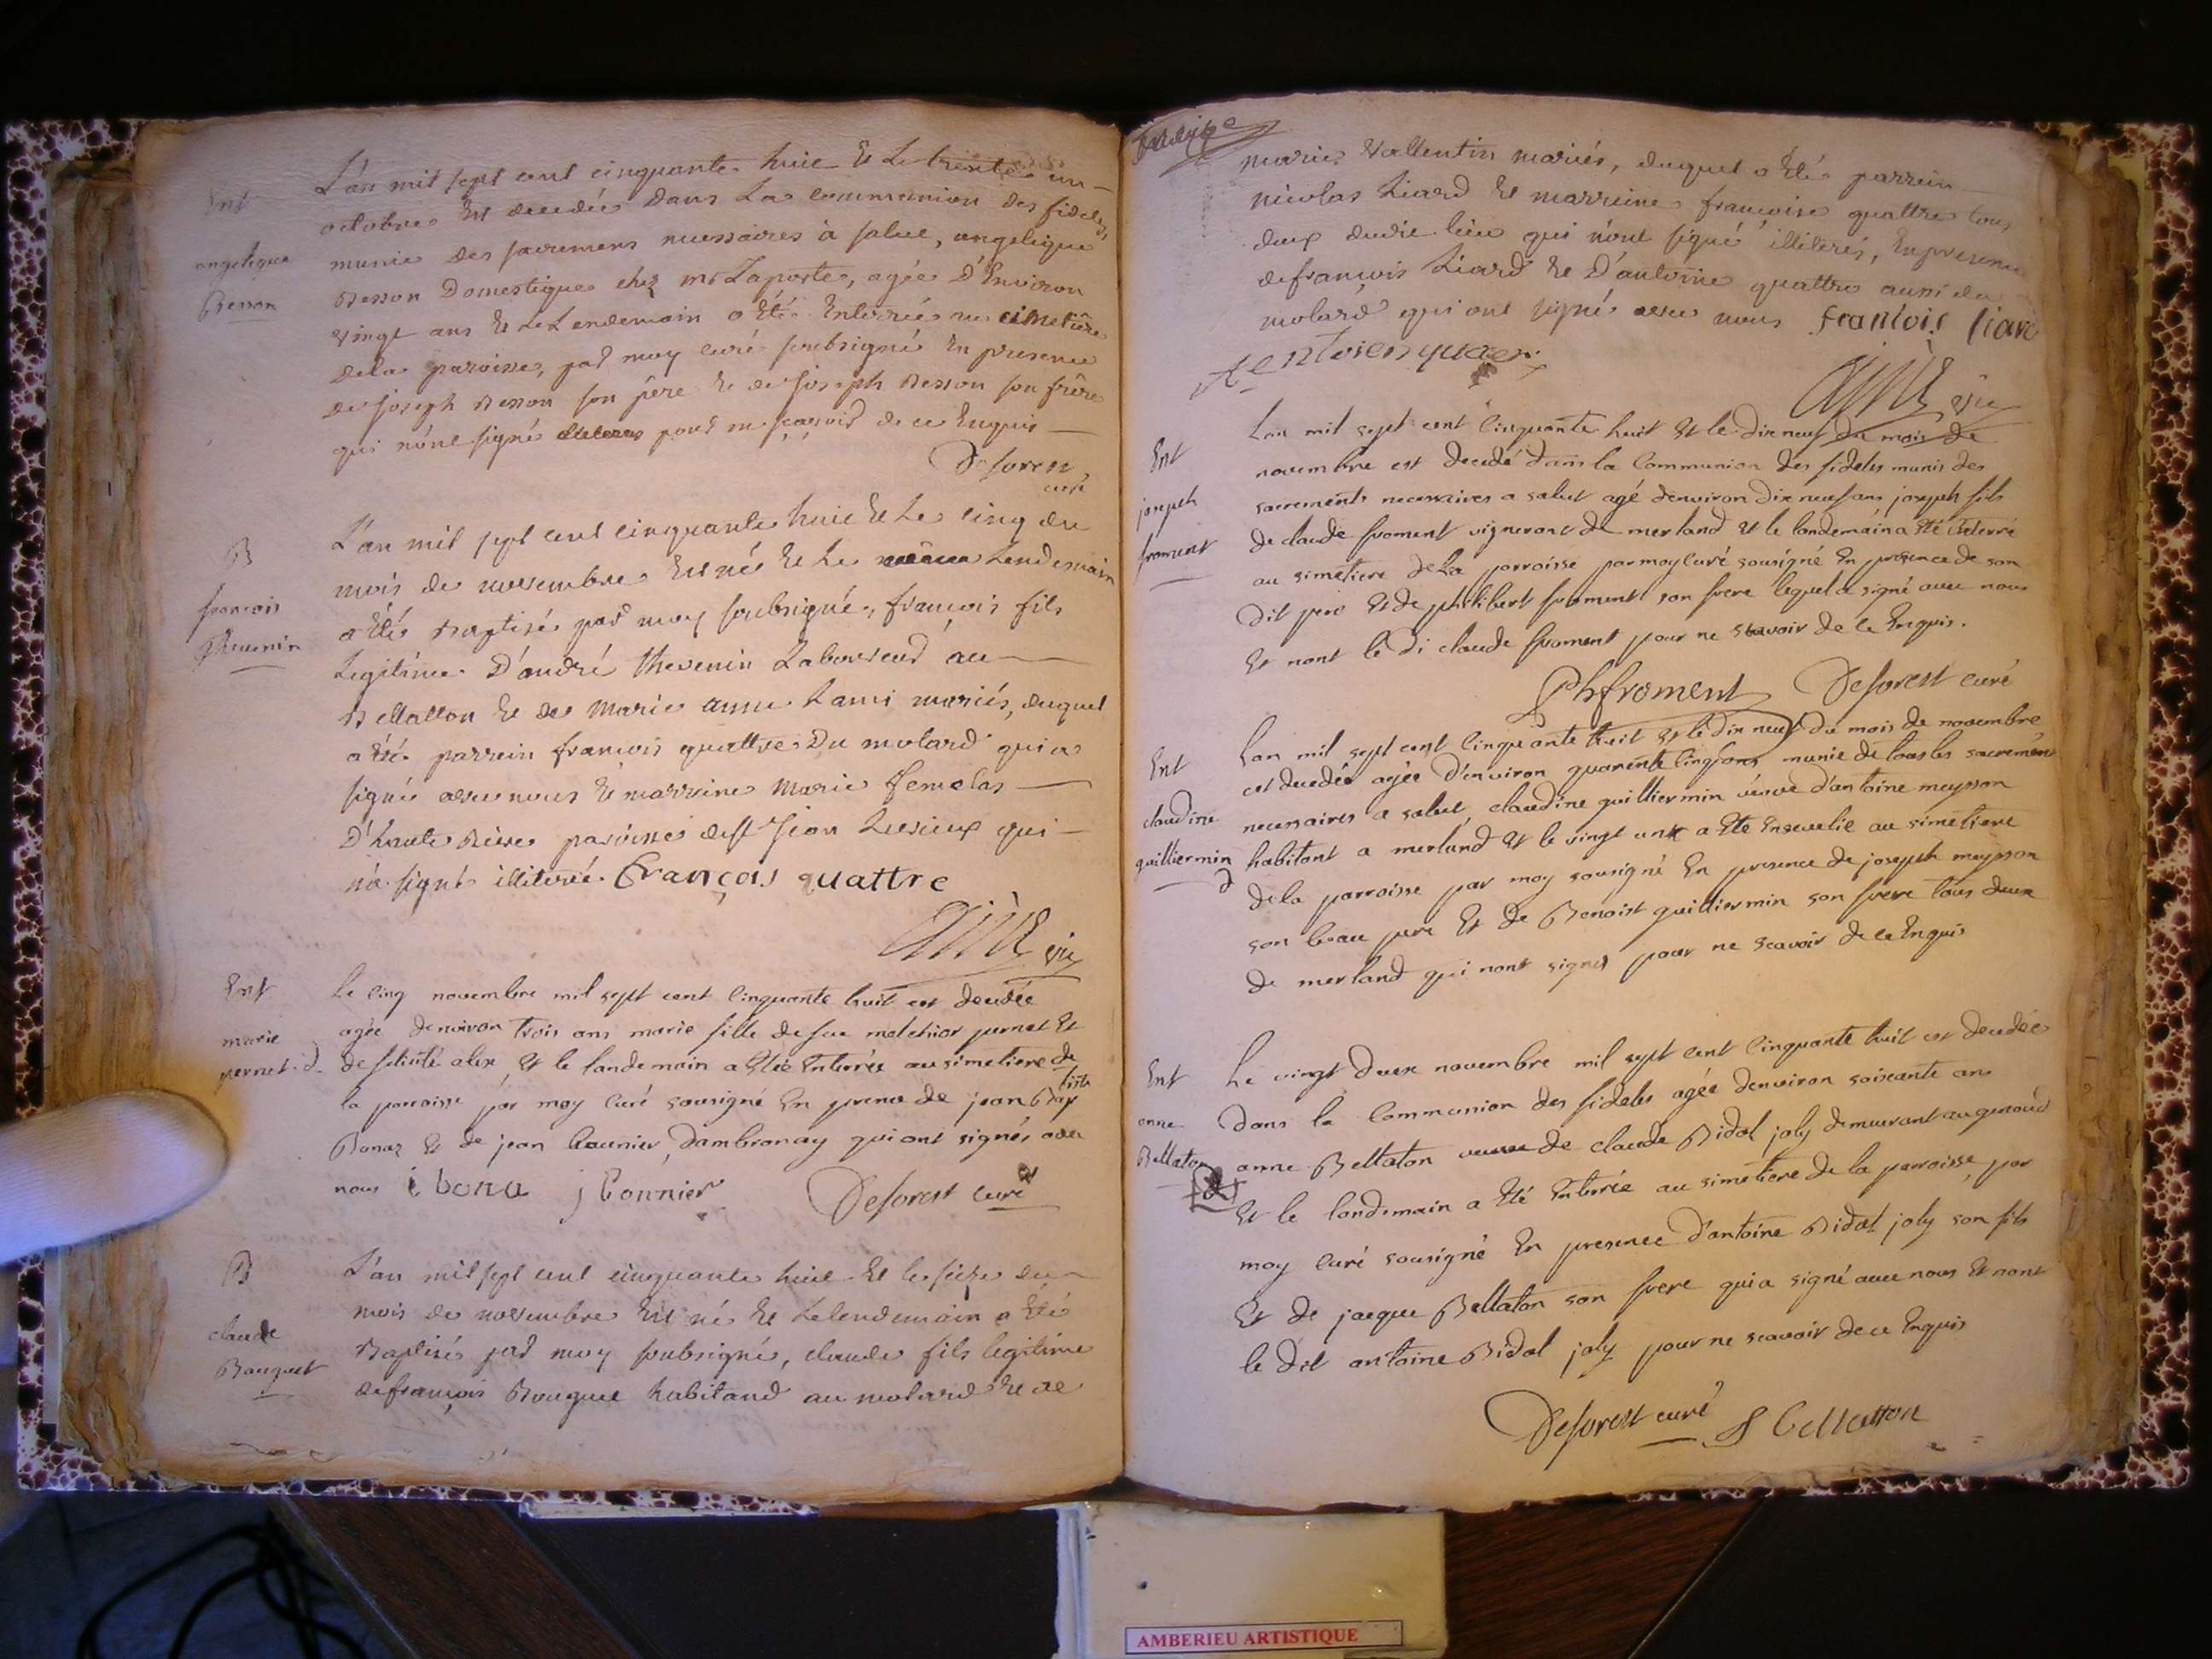 Ent
angelique
Besson
L'an mil sept cent cinquante huit Et Le trente un
octobre Est decedée dans La communion des fideles,
munie des sacremens necessaires à salut, angelique
Besson Domestique chez mr Laporte, agée D'Environ
vingt ans Et Le Lendemain a Eté Enterrée au cimetiere
de la paroisse, par moy curé soubsigné En presence
de joseph Besson son pere Et de joseph Besson son frère
qui n'ont signé pour ne sçavoir de ce Enquis
Deforest
curé
B
francois
Thevenin
L'an mil sept cent cinquante huit Et Le cinq du
mois de novembre Est né Et Le Lendemain
a Eté Baptisé par moy soubsigné, françois fils
Legitime D'andré thevenin Laboureur au
Bellatton Et de Marie anne Lami mariés, duquel
a Eté parrein francois quattre Du molard qui a
signé avec nous Et marreine Marie femelas
D'haute Rive paroisse de st jean Le vieux qui
n'a signé illiterée. François quattre
vic
Ent
marie
pernet
Le cinq novembre mil sept cent cinquante huit est decedée
agée denviron trois ans marie fille de feu melchior pernet Et
de felicité alex, Et le landemain a Eté Enterrée au simetiere de
la parroisse par moy curé sousigné En presence de jean Bap
tiste
Bonaz Et de jean bounier, dambronay qui ont signés avec
nous i bona j bonnier Deforest curé
B
claude
Bouquet
L'an mil sept cent cinquante huit Et le seize du
mois de novembre Est né Et Le lendemain a Eté
Baptisé par moy soubsigné, claude fils legitime
de françois Bouquet habitand au molard Et de
marie Vallentin mariés, duquel a Eté parrein
nicolas Liard Et marreine francoise quattre tous
deux dudit lieu qui n'ont signé illiterés, En presence
de francois Liard Et D'antoine quattre aussi du
molard qui ont signé avec nous francois liard
vic
Ent
joseph
froment
Lan mil sept cent cinquante huit Et le dix neuf du mois de
novembre est decedé dans la Communion des fideles munis des
sacrements necessaires a salut agé denviron dix neuf ans joseph fils
de claude froment vigneront de merland Et le landemain a Eté Enterré
au simetiere de La parroisse par moy curé sousigné En presence de son
dit pere Et de philibert froment son frere lequel a signé avec nous
Et nont le di claude froment pour ne scavoir de ce Enquis.
Phfroment Deforest curé
Ent
claudine
guilliermin
Lan mil sept cent cinquante huit Et le dix neuf du mois de novembre
est decedée agée d'environ quarente cinq ans munie de tous les sacrements
necessaires a salut, claudine guilliermin veuve d'antoine meysson
habitant a merland Et le vingt un a Eté Ensevelie au simetiere
de la parroisse par moy sousigné En presence de joseph meysson
son beau pere Et de Benoist guilliermin son frere tous deux
de merland qui nont signés pour ne scavoir de ce Enquis
Ent
anne
Bellaton
Le vingt deux novembre mil sept cent cinquante huit est decedée
dans la Communion des fideles agée denviron soixante ans
anne Bellaton veuve de claude Bidal joly demeurant au genoud
Et le landemain a Eté Enterrée au simetiere de la parroisse par
moy curé sousigné En presence d'antoine Bidal joly son fils
Et de jacque Bellaton son frere qui a signé avec nous Et nont
le dit antoine Bidal joly pour ne scavoir de ce Enquis
Deforest curé J bellatton
AMBERIEU ARTISTIQUE